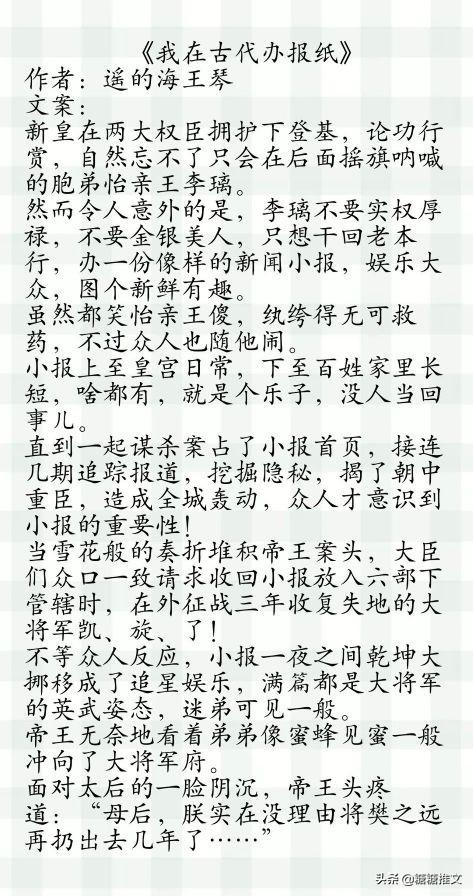 《我在古代办报纸》
作者：遥的海王琴
文案：
新皇在两大权臣拥护下登基，论功行
赏，自然忘不了只会在后面摇旗呐喊
的胞弟怡亲王李璃。
然而令人意外的是，李璃不要实权厚
禄，不要金银美人，只想干回老本
行，办一份像样的新闻小报，娱乐大
众，图个新鲜有趣。
虽然都笑怡亲王傻，纨绔得无可救
药，不过众人也随他闹。
小报上至皇宫日常，下至百姓家里长
短，啥都有，就是个乐子，没人当回
事儿。
直到一起谋杀案占了小报首页，接连
几期追踪报道，挖掘隐秘，揭了朝中
重臣，造成全城轰动，众人才意识到
小报的重要性！
当雪花般的奏折堆积帝王案头，大臣
们众口一致请求收回小报放入六部下
管辖时，在外征战三年收复失地的大
将军凯、旋、了！
不等众人反应，小报一夜之间乾坤大
挪移成了追星娱乐，满篇都是大将军
的英武姿态，迷弟可见一般。
帝王无奈地看着弟弟像蜜蜂见蜜一般
冲向了大将军府。
面对太后的一脸阴沉，帝王头疼
道：“母后，朕实在没理由将樊之远
再扔出去几年了……”
头条 @糖糖推文